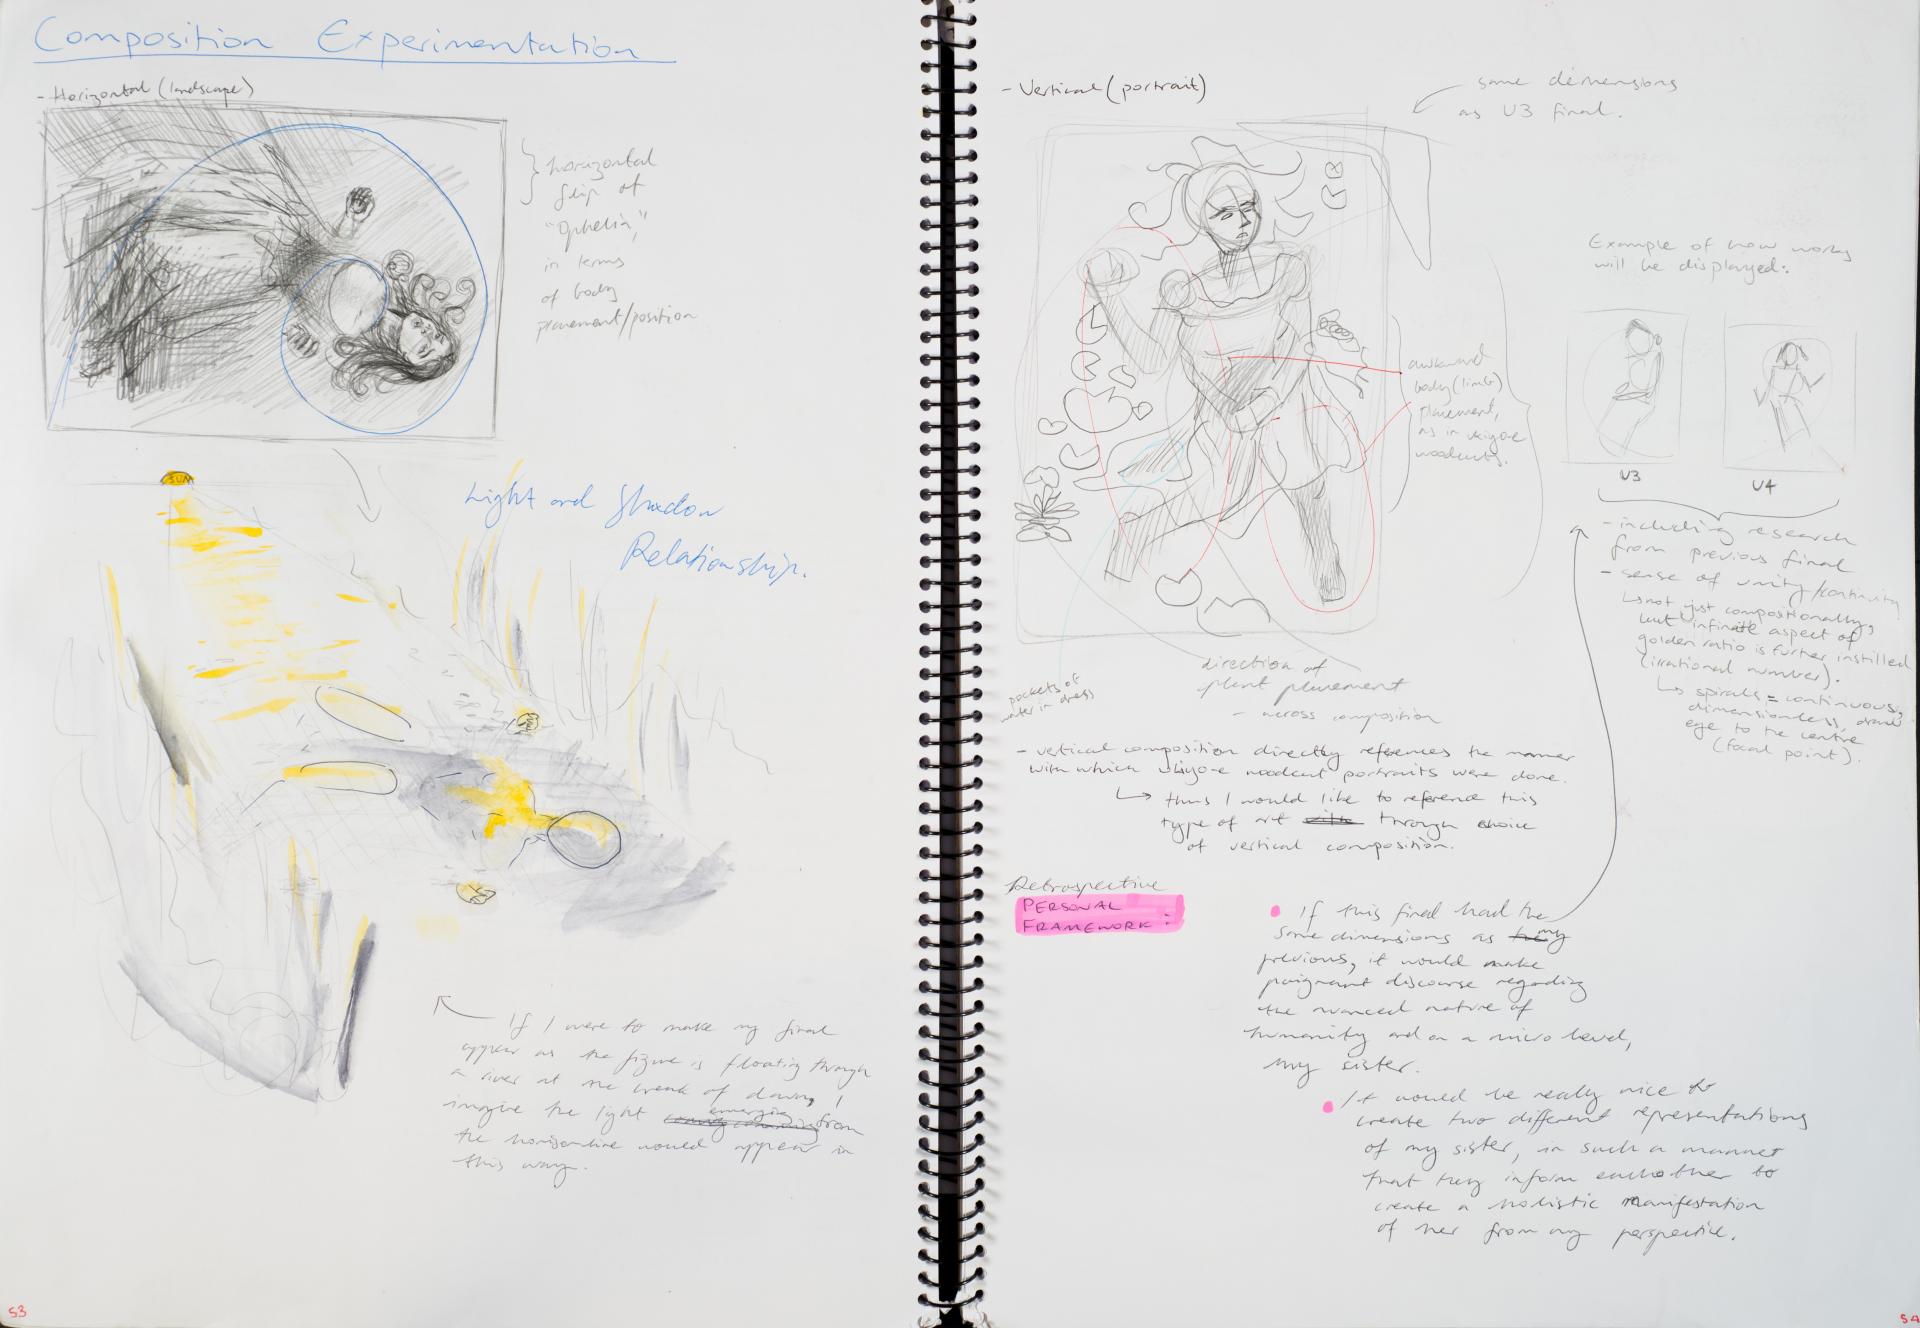 Composition Experimentation
- Horizontal (landscape)
} horizontal
flip of
"Ophelia,"
in terms
of body
placement/position
SUN
Light and Shadow
Relationship.
If I were to make my final
appear as the figure is floating through
a river at the break of dawn, I
imagine the light emerging from
the horizon line would appear in
this way.
53
- Vertical (portrait)
same dimensions
as U3 final.
Example of how works
will be displayed:
awkward
body (limb)
placement,
as in ukiyo-e
woodcuts.
U3
U4
- including research
from previous final
- sense of unity/continuity
↳ not just compositionally,
but infinite aspect of
golden ratio is further instilled
(irrational number).
↳ spirals = continuous,
dimensionless, draw
eye to the centre
(focal point).
pockets of
water in dress
direction of
plant placement
- across composition
- vertical composition directly references the manner
with which ukiyo-e woodcut portraits were done.
↳ thus I would like to reference this
type of art through choice
of vertical composition.
Retrospective
PERSONAL
FRAMEWORK:
• If this final had the
same dimensions as my
previous, it would make
poignant discourse regarding
the nuanced nature of
humanity and on a micro level,
my sister.
• It would be really nice to
create two different representations
of my sister, in such a manner
that they inform eachother to
create a holistic manifestation
of her from my perspective.
54